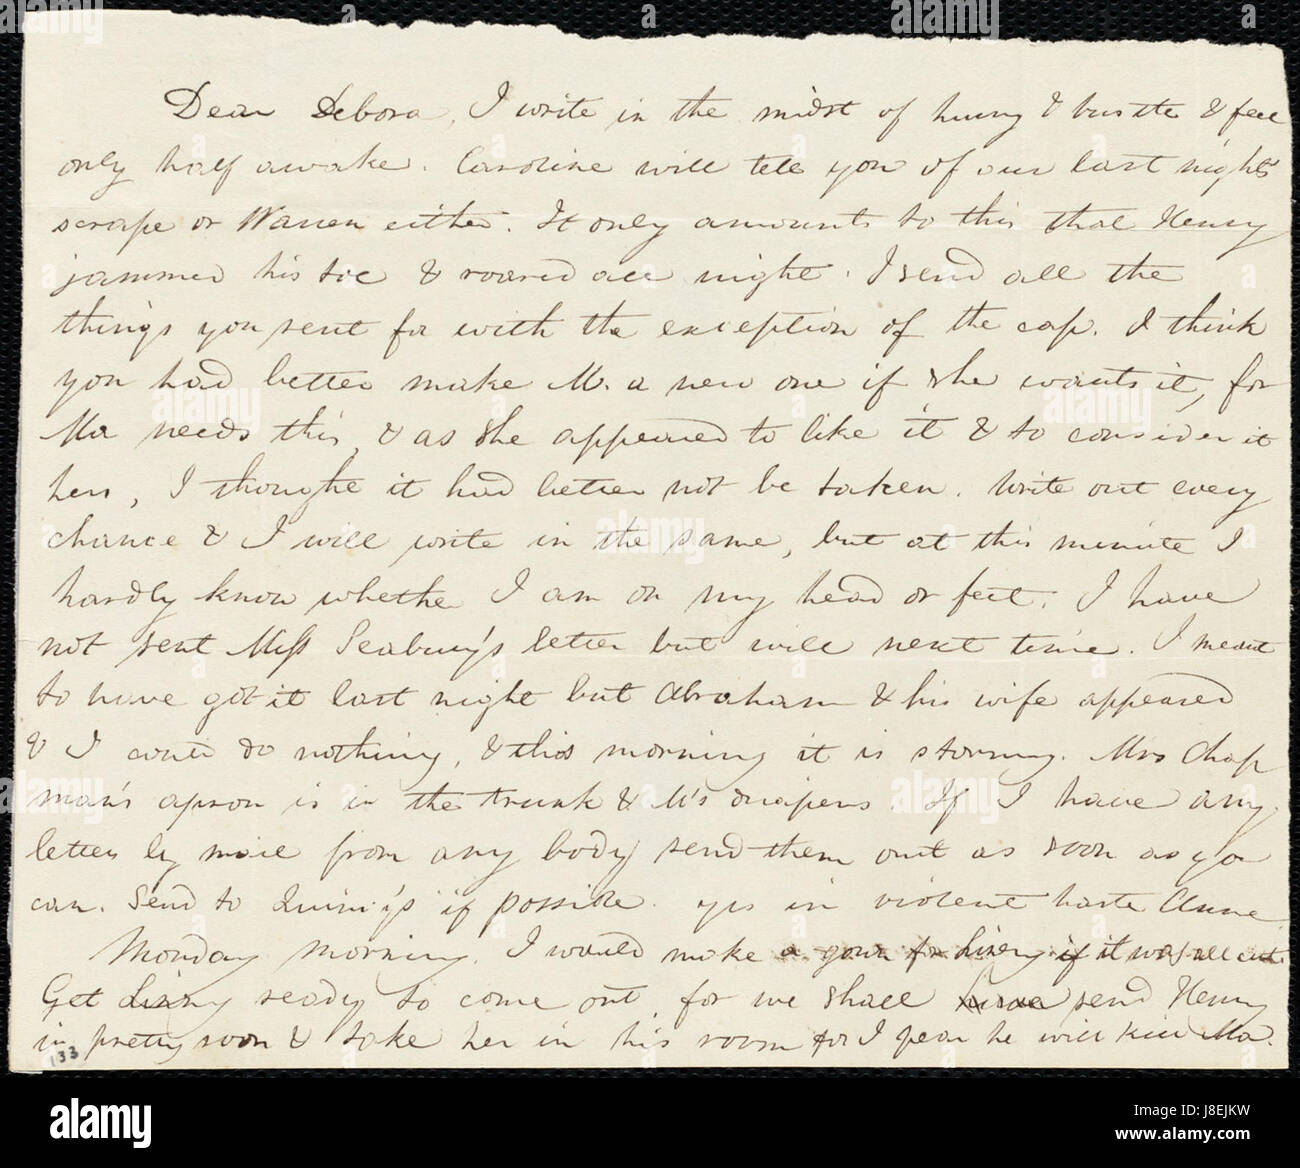 Dear Debora, I write in the midst of hurry & bustle & feel
only half awake. Caroline will tell you of our last nights
scrape or Warren either. It only amounts to this that Henry
jammed his toe & roared all night. I send all the
things you sent for with the exception of the cap. I think
you had better make M. a new one if she wants it, for
Ma needs this, & as she appeared to like it & to consider it
hers, I thought it had better not be taken. Write out every
chance & I will write in the same, but at this minute I
hardly know whether I am on my head or feet. I have
not sent Miss Seabury's letter but will next time. I meant
to have got it last night but Abraham & his wife appeared
& I could do nothing, & this morning it is storming. Mrs Chap
man's apron is in the trunk & M's diapers. If I have any
letters by mail from any body send them out as soon as you
can. Send to Quincy's if possible. yrs in violent haste Anne
Monday morning. I would make a gown for Lizzy if it was all cut.
Get Lizzy ready to come out, for we shall send Henry
in pretty soon & take her in his room for I fear he will kill Ma.
133
alamy
alamy
Image ID: J8EJKW
www.alamy.com